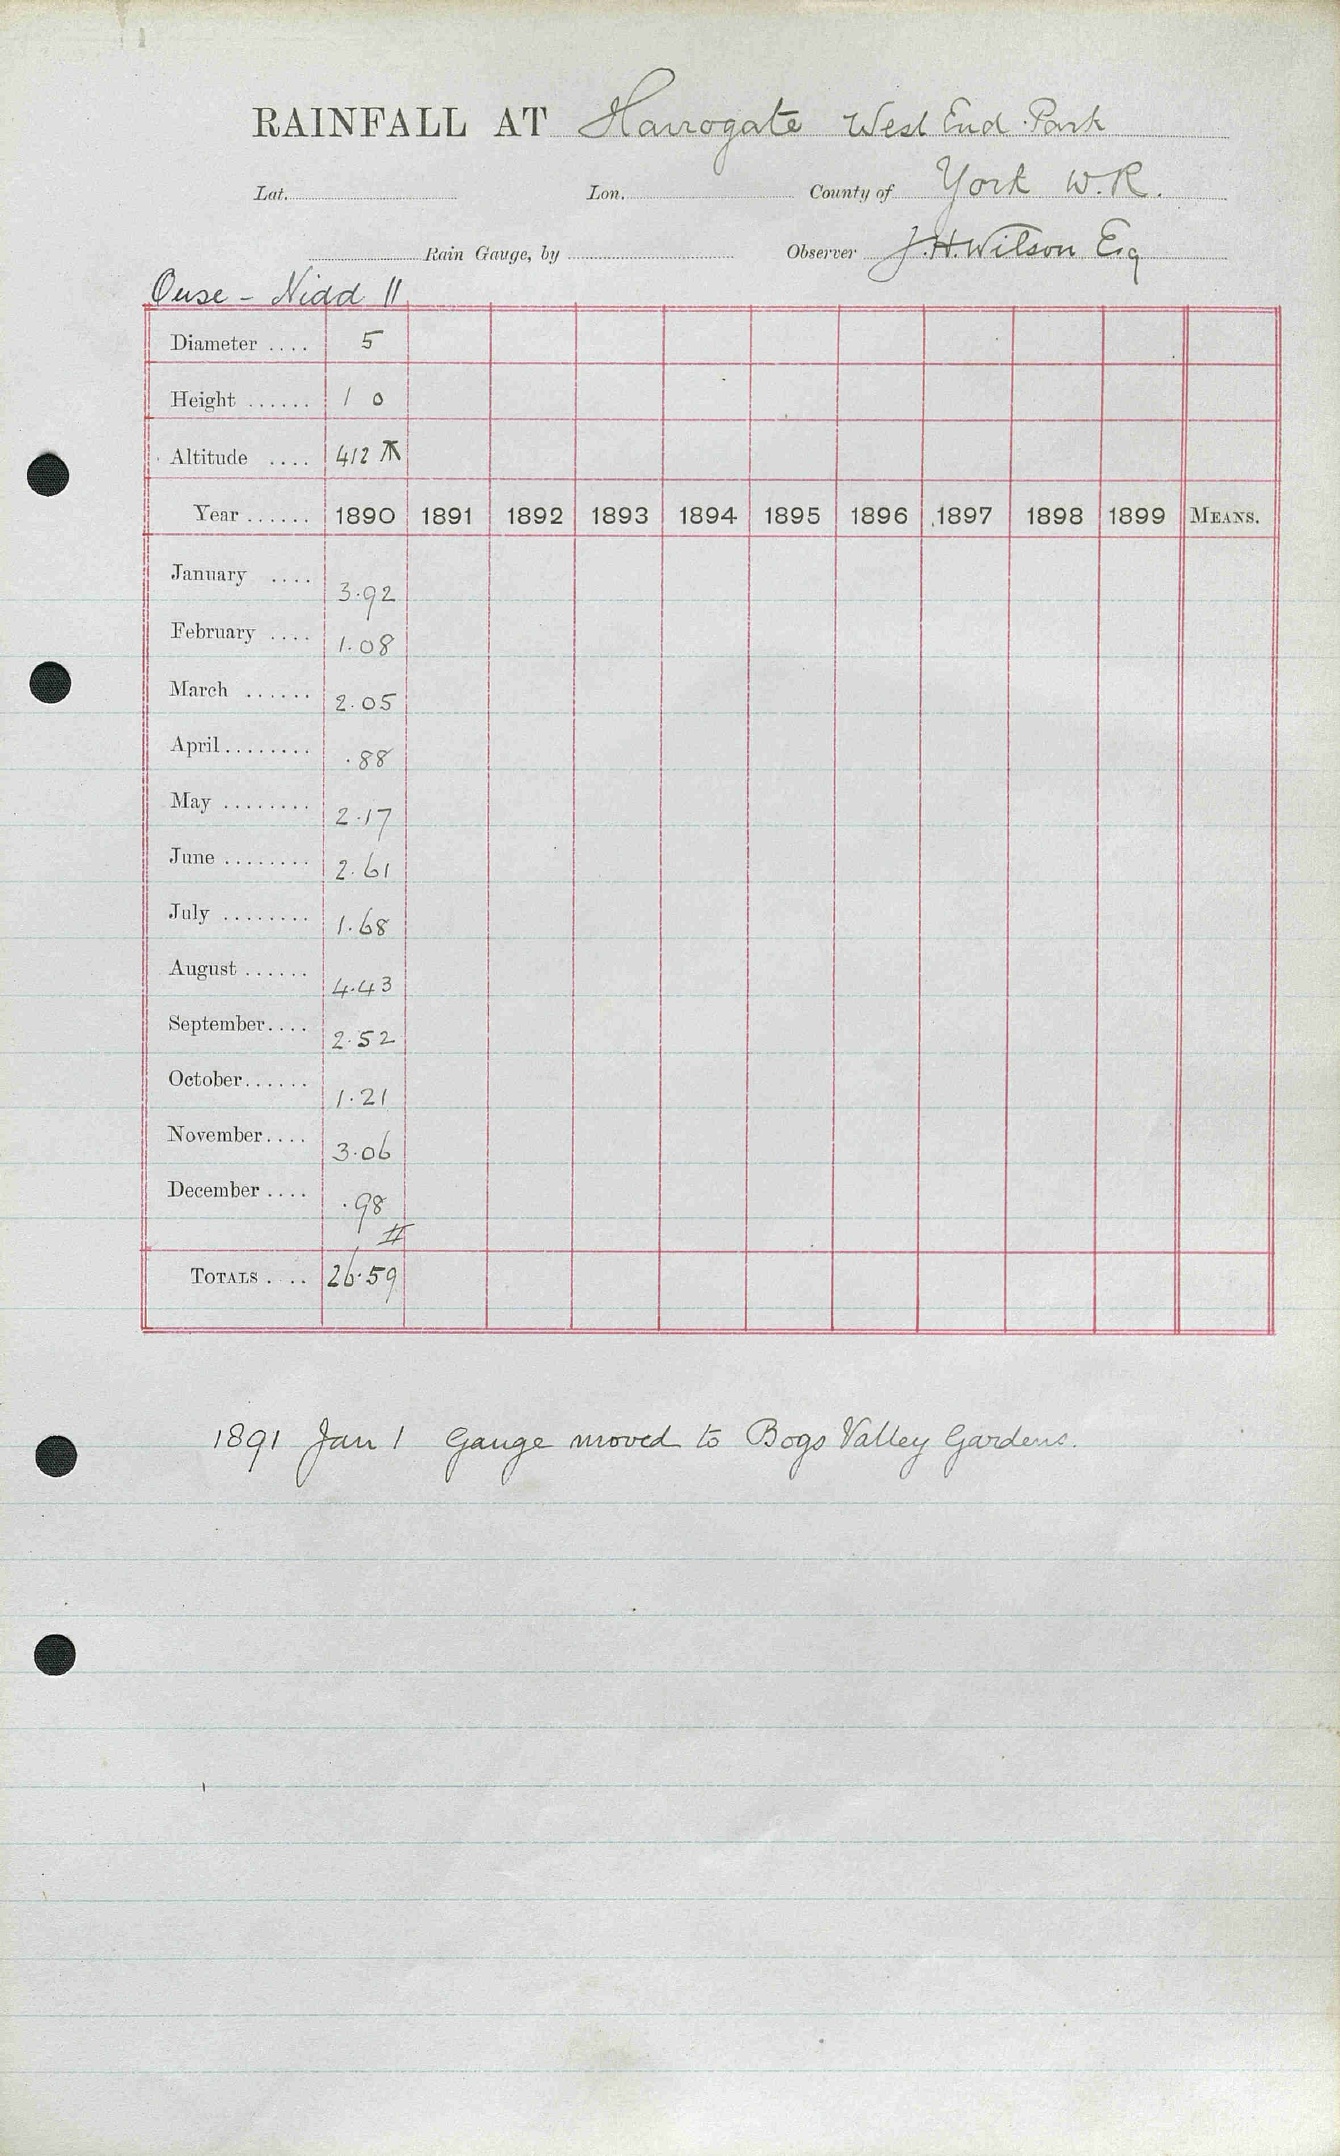 RAINFALL AT Harrogate West End Park
Lat. Lon. County of York W.R.
Rain Gauge, by Observer J.H. Wilson Esq
Ouse - Nidd 11
Diameter .... 5
Height ...... 1 0
Altitude .... 412
Year ...... 1890 1891 1892 1893 1894 1895 1896 1897 1898 1899 MEANS.
January .... 3.92
February .... 1.08
March ...... 2.05
April ........ .88
May ........ 2.17
June ........ 2.61
July ........ 1.68
August ...... 4.43
September .... 2.52
October ...... 1.21
November .... 3.06
December .... .98
TOTALS .... 26.59
1891 Jan 1 Gauge moved to Bogs Valley Gardens.